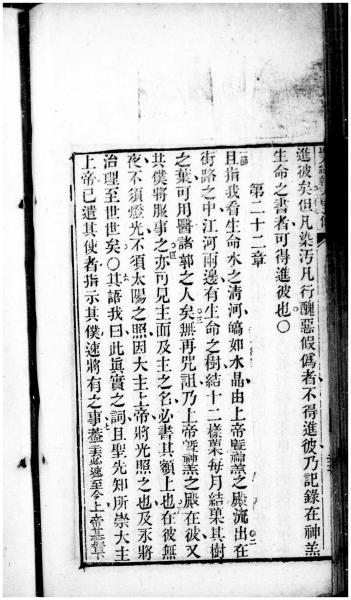 進彼矣但凡染汚凡行醜惡假僞者不得進彼乃記錄在神羔
生命之書者可得進彼也〇
第二十二章
且指我看生命水之清河皜如水晶由上帝曁神羔之殿流出在
街路之中江河兩邊有生命之樹結十二樣菓每月結菓其樹
之葉可用醫諸郭之人矣無再咒詛乃上帝曁神羔之殿在彼又
其僕將服事之亦可見主而及主之名必書其額上也在彼無
夜不須燈光不須太陽之照因大主上帝將光照之也及永將
治理至世世矣〇其語我曰此眞實之詞且聖先知所崇大主
上帝已遣其使者指示其僕速將有之事蓋